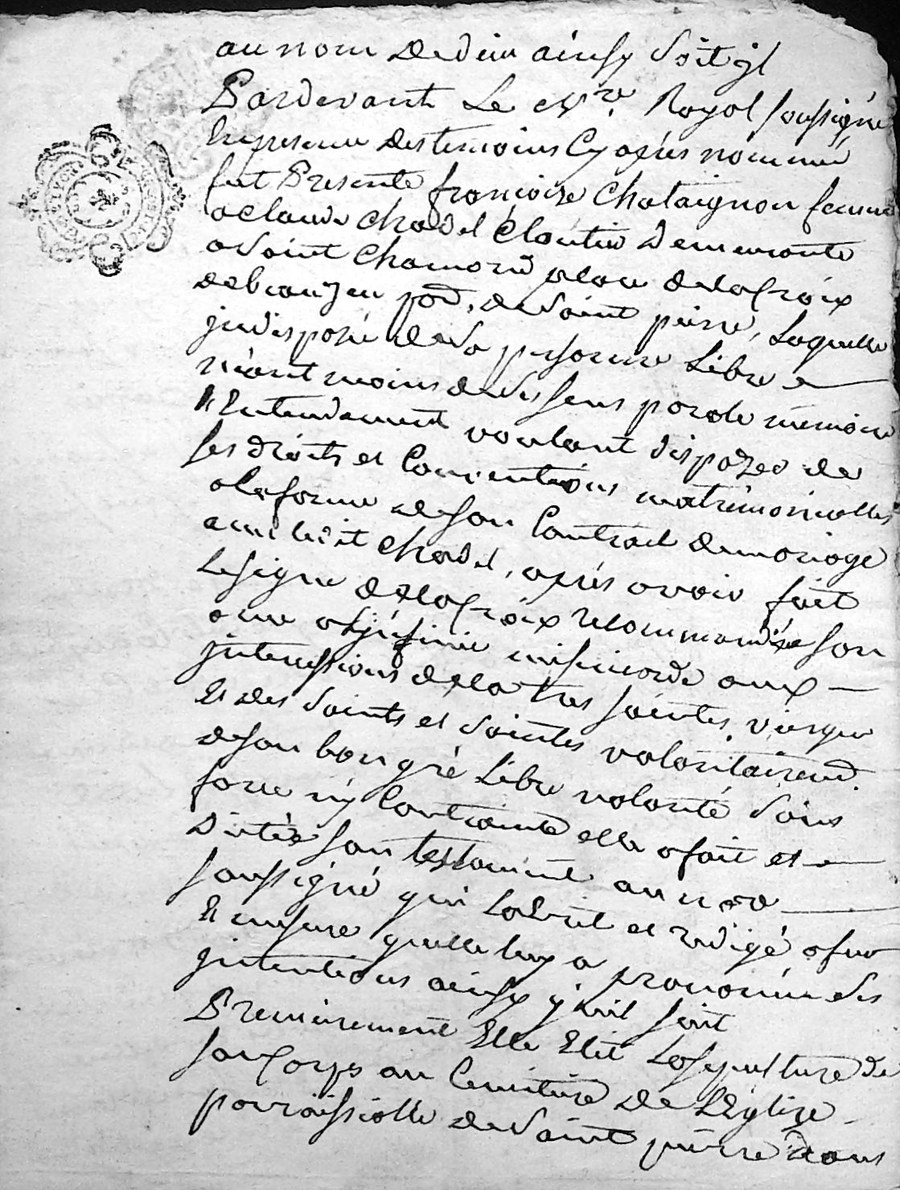 au nom de dieu ainsy soit jl
Pardevant Le nre Royal soussigné
En presence des temoins Cy apres nommé
fut Presente françoise Chataignon femme
a claude Chadel Cloutier demeurante
a Saint Chamond place de la Croix
de beaujeu pnd. de Saint pierre, Laquelle
jndisposée de sa personne Libre
neant moins de ses sens parole memoire
Et Entendement voulant disposer de
ses droits et Conventions matrimonielles
a la forme de son Contrat de mariage
avec ledit Chadel, après avoir fait
Le signe de la Croix recommandée son
ame a jnfinie misericorde aux
jntercessions de la tres sainte vierge
Et des Saints et Saintes volontairemt.
de son bon gré Libre volonté Sans
force ny Contrainte elle a fait et
Dictée son testament au nre
soussigné qui La Ecrit et redigé a fur
Et mesure quelle luy a prononcée ses
jntentions ainsy qu'il suit
Premierement Elle Elit La sepulture de
son Corps au Cimetiere de L'Eglise
parroissialle de Saint pierre dans